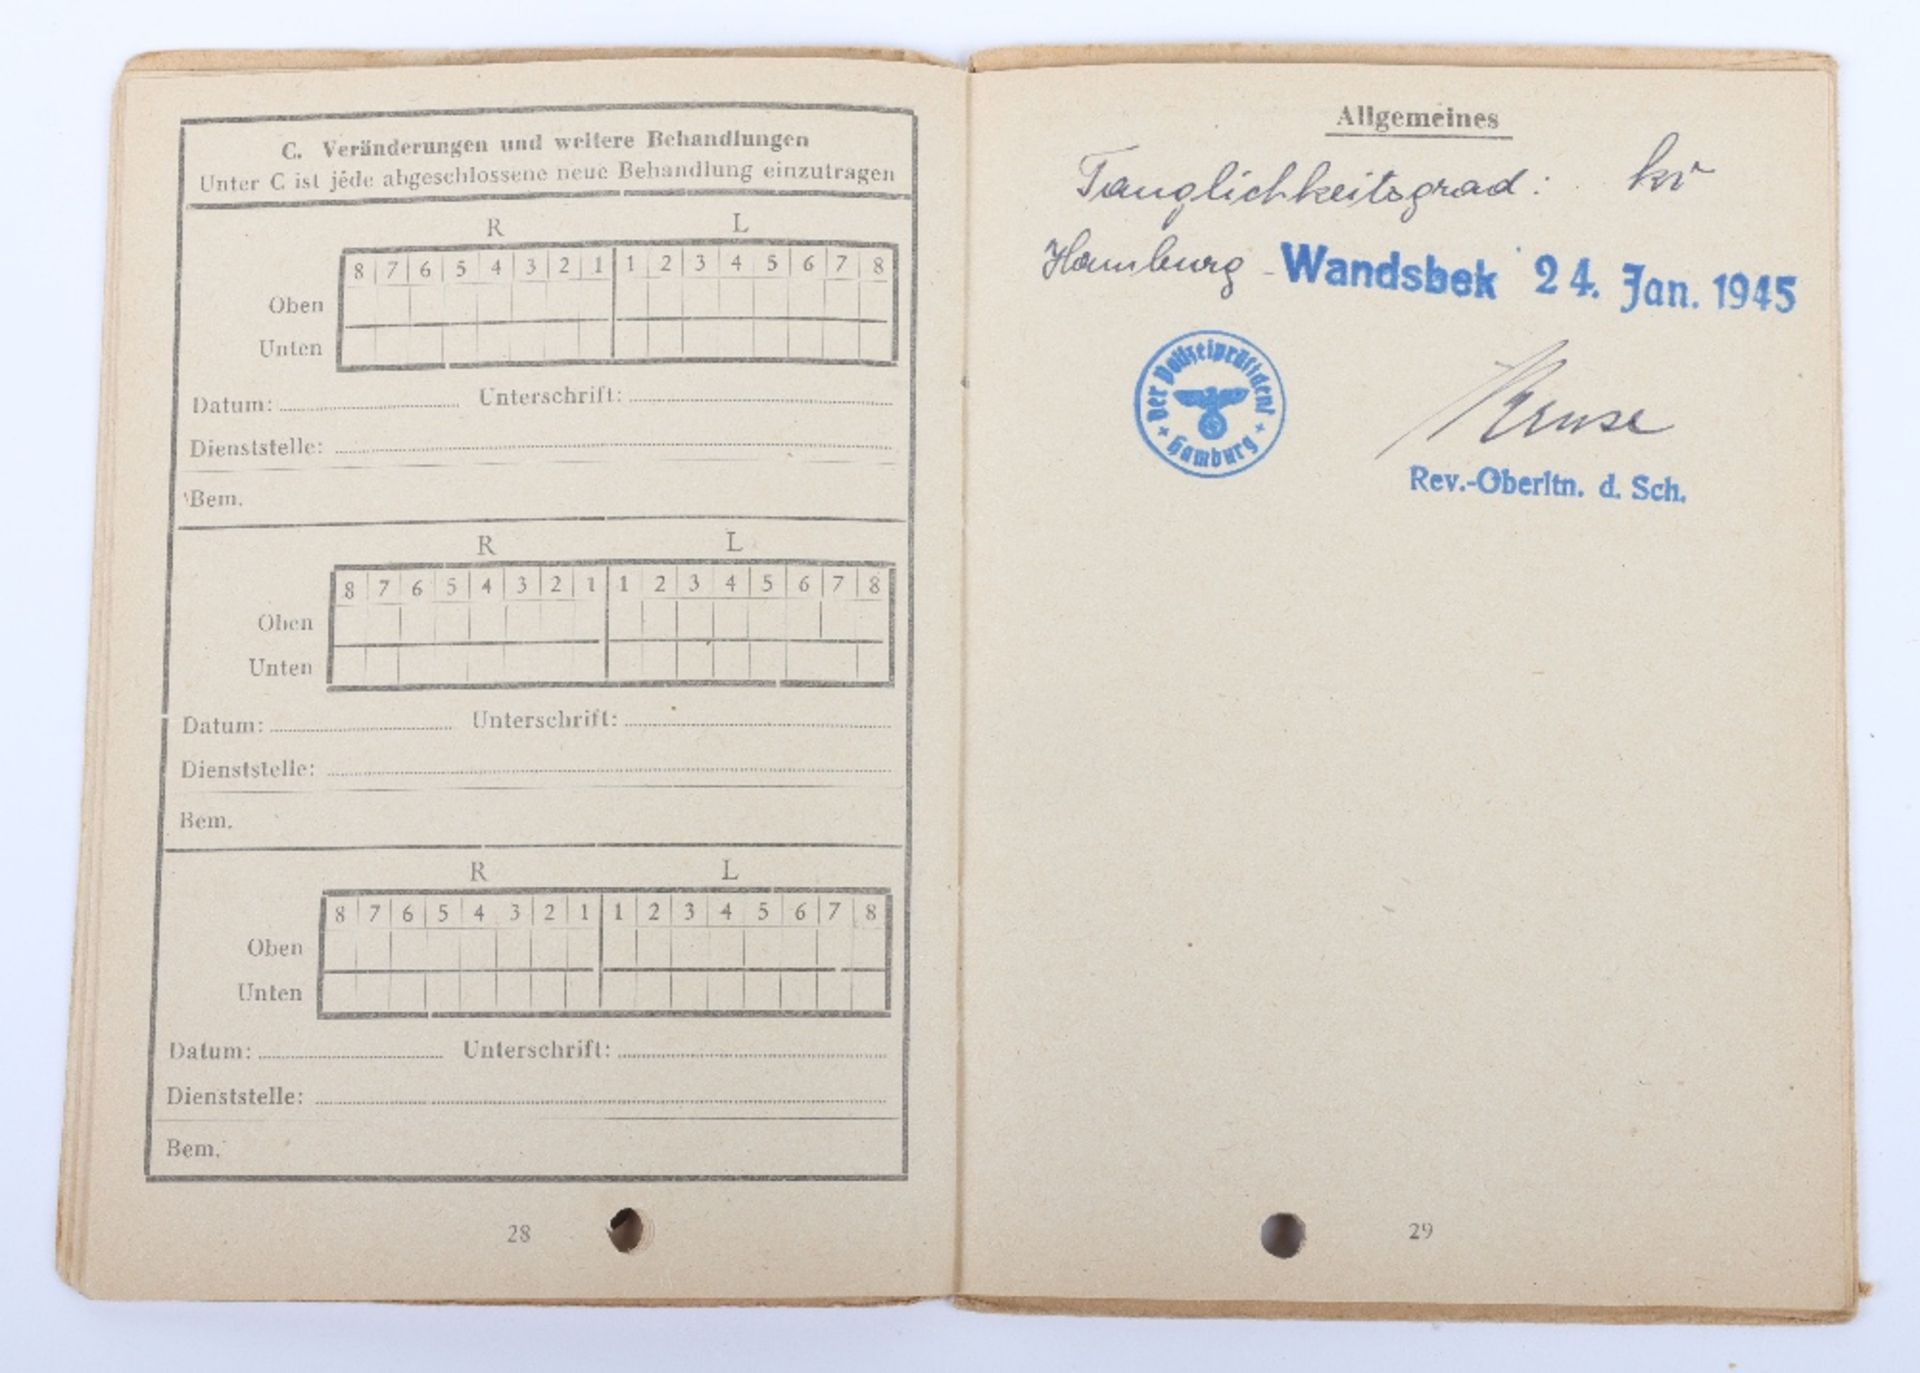 C. Veränderungen und weitere Behandlungen
Unter C ist jede abgeschlossene neue Behandlung einzutragen
R L
8 7 6 5 4 3 2 1 1 2 3 4 5 6 7 8
Oben
Unten
Datum: Unterschrift:
Dienststelle:
Bem.
R L
8 7 6 5 4 3 2 1 1 2 3 4 5 6 7 8
Oben
Unten
Datum: Unterschrift:
Dienststelle:
Bem.
R L
8 7 6 5 4 3 2 1 1 2 3 4 5 6 7 8
Oben
Unten
Datum: Unterschrift:
Dienststelle:
Bem.
28
Allgemeines
Tauglichkeitsgrad: kv
Hamburg - Wandsbek 24. Jan. 1945
Der Polizeipräsident
+ Hamburg +
Kruse
Rev.-Oberltn. d. Sch.
29